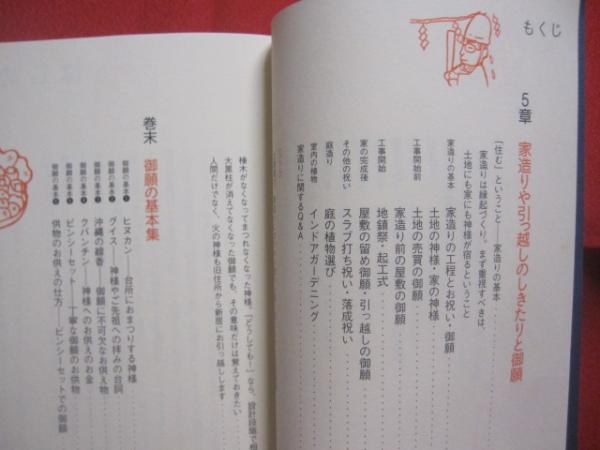 もくじ
5章 家造りや引っ越しのしきたりと御願
「住む」ということ 家造りの基本
家造りは縁起づくり。まず重視すべきは、
土地にも家にも神様が宿るということ
家造りの基本 家造りの工程とお祝い・御願
土地の神様・家の神様
工事開始前 土地の売買の御願
家造り前の屋敷の御願
工事開始 地鎮祭・起工式
家の完成後 屋敷の留め御願・引っ越しの御願
その他の祝い スラブ打ち祝い・落成祝い
庭造り 庭の植物選び
室内の植物 インドアガーデニング
家造りに関するQ&A
棟木がなくなってまつれなくなった神様。「どうしても」なら、設計段階で
大黒柱が消えてなくなった御願でも、その意味だけは覚えておきたい
人間だけでなく、火の神様も旧住所から新居にお引っ越しします
巻末 御願の基本集
御願の基本❶ ヒヌカン――台所におまつりする神様
御願の基本❷ グイス――神様やご先祖への拝みの台詞
御願の基本❸ 沖縄の線香――御願に不可欠なお供え物
御願の基本❹ クバンチン――神様へのお供えのお金
御願の基本❺ ビンシーセット――丁寧な御願のお供物
御願の基本❻ 供物のお供えの仕方――ビンシーセットでの御願